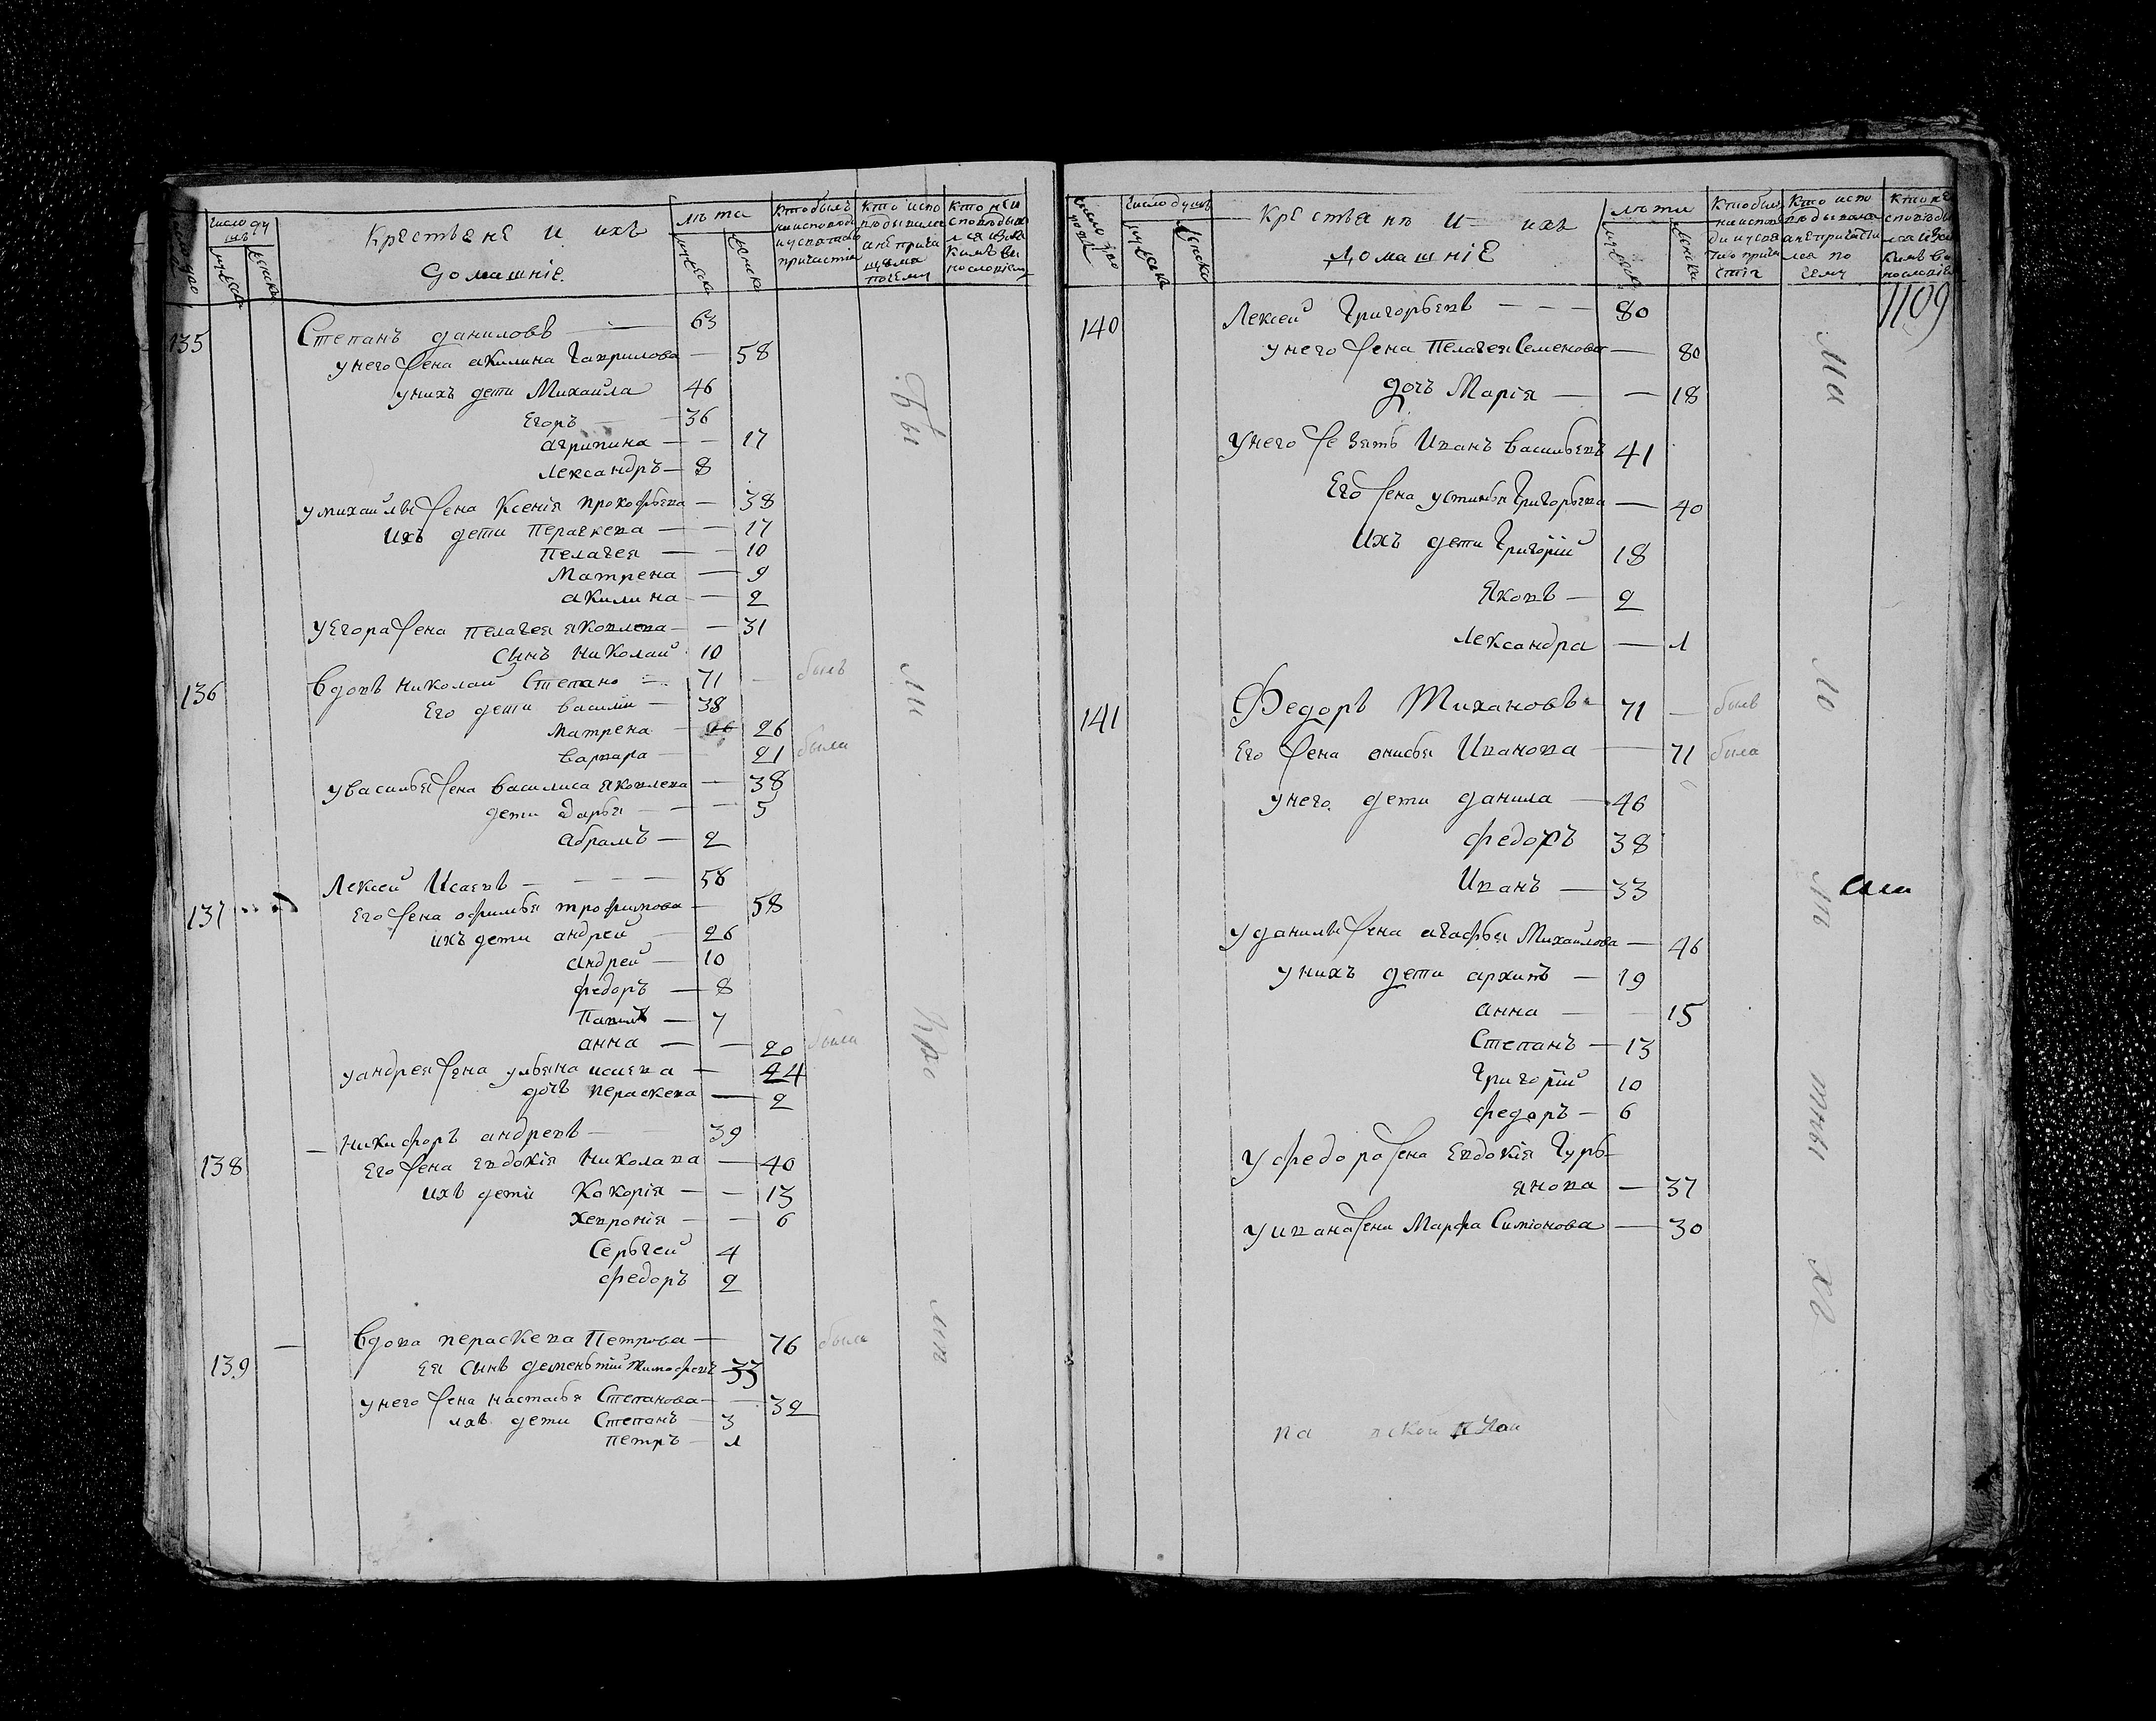 число ду
шъ
Крестьяне и ихъ
домашніе.
лѣта
мужеска
женска
Кто былъ
на исповѣди
и у святаго
причастія
Кто испо
вѣдывался
а не прича
щался
почему
Кто не и
сповѣдыва
лся и за ка
кимъ ви
нословіемъ
135
Степанъ даниловъ — 63
у него жена акилина Гаврилова — 58
у нихъ дети Михаила 46
Егоръ — 36
агрипина — — 17
лександръ — 8
у михаилы жена Ксенія прокофьева — 38
ихъ дети Пераскева — — 17
Пелагея — — 10
Матрена — 9
акилина — 2
у Егора жена пелагея яковлева — — 31
сынъ Николай 10
136
вдовъ николай Степано — 71 — былъ
Его дети василий — 38
матрена — 26 26
варвара — 21 была
у василья жена василиса яковлева — 38
дети дарья — — 5
абрамъ — 2
137
Лексей Исаевъ — — — — 58
Его жена офимья трофимова — 58
ихъ дети андрей — 26
андрей — 10
федоръ — 8
Павилъ — 7
анна — — 20 была
у андрея жена ульяна исаева — 24
дочь пераскева — 2
138
— Никифоръ андревъ — 39
Его жена Евдокія Николава — 40
ихъ дети Кокорія — — 13
хевронія — — 6
Сергей 4
федоръ 2
139
— вдова пераскева Петрова — 76 была
Ея сынъ дементий Тимофевъ 33
у него жена настасья Степанова — — 32
ихъ дети Степанъ — 3
петръ — 1
Ѣды
ли
про
1109
число дво
ровъ
число душъ
мужеска
женска
Крестьянѣ и — ихъ
домашніе
лѣта
мужеска
женска
Кто былъ
на исповѣ
ди и у свя
таго прича
стія
Кто испо
вѣдывался
а не причасти
лся по
чему
Кто не
исповѣды
лся и за ка
кимъ ви
нословіе
140
Лексей Григорьевъ — — — 80
у него жена Пелагея Семенова — 80
дочь Марія — — 18
у него же зять Иванъ васильевъ 41
Его жена устинья Григорьева — 40
Ихъ дети Григорій 18
Яковъ — 2
лександра — 1
141
Федоръ Тихановъ — 71 — былъ
Его жена анисья Иванова — 71 была
у него дети данила — 46
федоръ 38
Иванъ — 33
у данилы жена агафья Михайлова — 46
у нихъ дети архипъ — 19
анна — — 15
Степанъ — 13
Григорій 10
федоръ — 6
у федора жена Евдокія Гурь-
янова — 37
у ивана жена Марфа Симіонова — 30
ма
ло
лѣ
тны